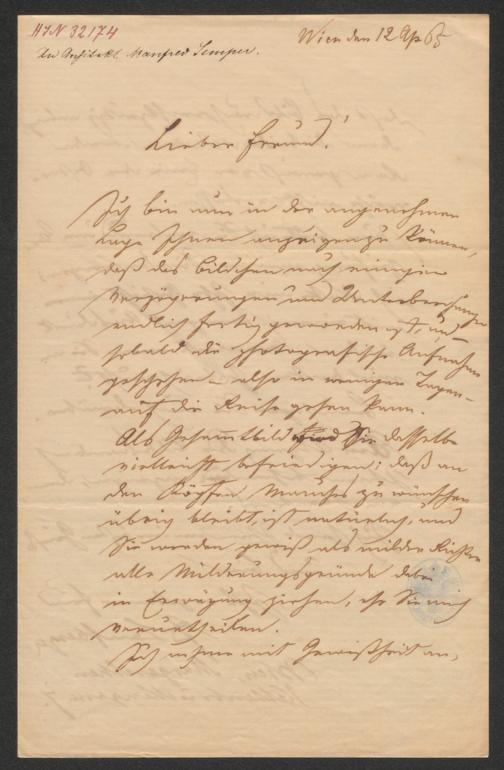 HIN 32174
An Architekt Manfred Semper.
Wien den 12 Ap 65
Lieber Freund!
Ich bin nun in der angenehmen
Lage Ihnen anzeigen zu können,
daß das Bildchen nach einigen
Verzögerungen und Unterbrechungen
endlich fertig geworden ist, und
sobald die photografische Aufnahme
geschehen – also in wenigen Tagen –
auf die Reise gehen kann.
Als Gesammtbild wird Sie dasselbe
vielleicht befriedigen; daß an
den Köpfen Manches zu wünschen
übrig bleibt, ist natürlich, und
Sie werden gewiß als milder Richter
alle Milderungsgründe dabei
in Erwägung ziehen, ehe Sie mich
verurtheilen.
Ich nehme mit Gewißheit an,